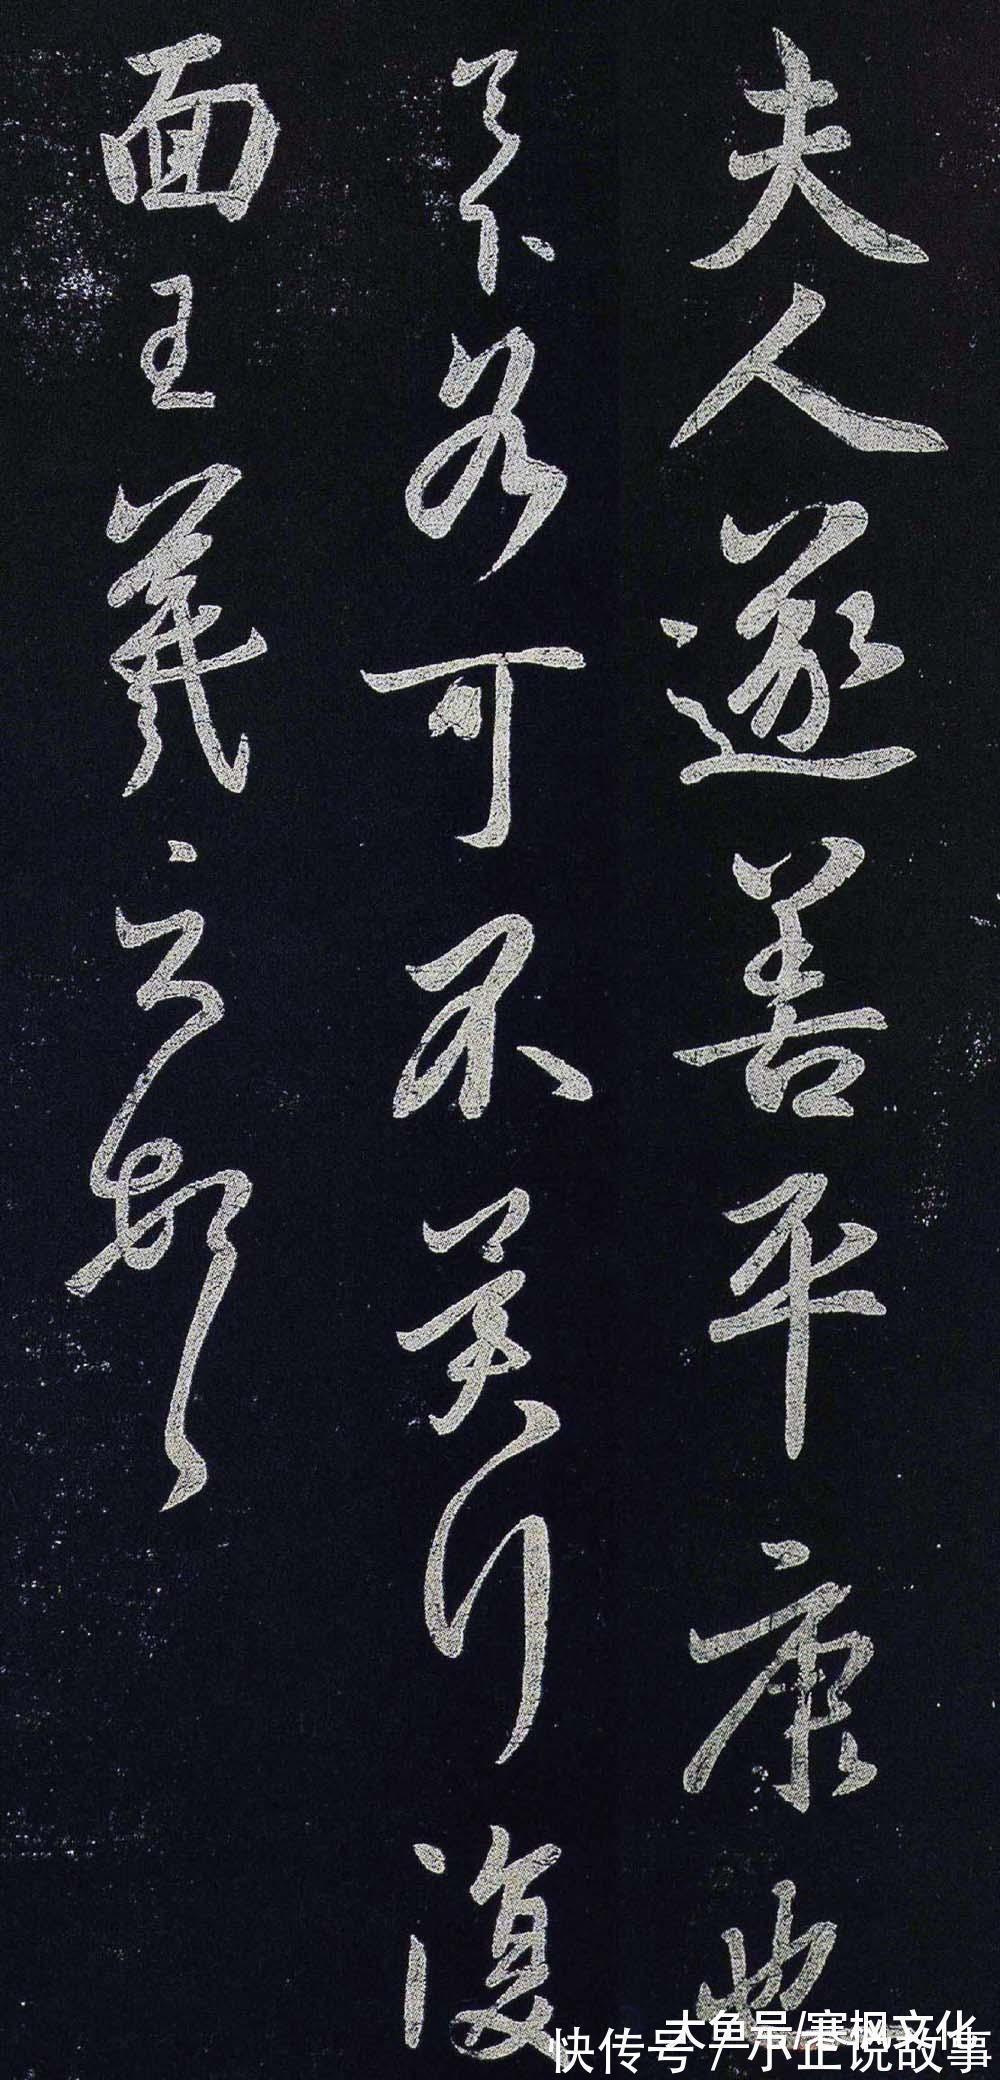 夫人遂善平康也
足下各可不冀行復
面王羲之頓首
大鱼号/寒枫文化
快传号 / 小正说故事